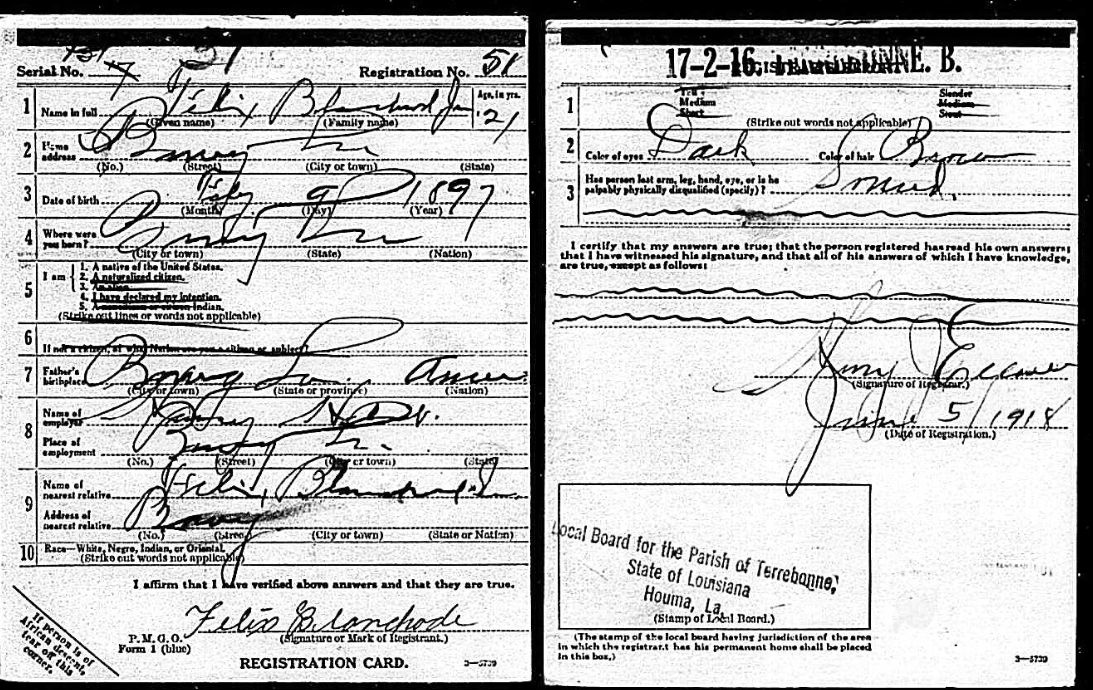 Serial No. 7 51 Registration No. 51
1 Name in full Felix Blanchard Jr Age, in yrs. 21
(Given name) (Family name)
2 Home address Bourg La
(No.) (Street) (City or town) (State)
3 Date of birth 9 1897
(Month) (Day) (Year)
4 Where were you born? Bourg La
(City or town) (State) (Nation)
5 I am
1. A native of the United States.
2. A naturalized citizen.
3. An alien.
4. I have declared my intention.
5. A noncitizen or citizen Indian.
(Strike out lines or words not applicable)
6 If not a citizen, of what Nation are you a citizen or subject?
7 Father's birthplace Bourg La Amer
(City or town) (State or province) (Nation)
8 Name of employer
Place of employment Bourg La.
(No.) (Street) (City or town) (State)
9 Name of nearest relative Felix Blanchard Sr.
Address of nearest relative Bourg
(No.) (Street) (City or town) (State or Nation)
10 Race—White, Negro, Indian, or Oriental.
(Strike out words not applicable)
I affirm that I have verified above answers and that they are true.
Felix Blanchode
(Signature or Mark of Registrant.)
P. M. G. O.
Form 1 (blue)
REGISTRATION CARD. 3—5739
If person is of
African descent,
tear off this
corner.
17-2-16. B.
1 Tall Medium Short Slender Medium Stout
(Strike out words not applicable)
2 Color of eyes Dark Color of hair Brown
3 Has person lost arm, leg, hand, eye, or is he
palpably physically disqualified (specify)? Sound
I certify that my answers are true; that the person registered has read his own answers;
that I have witnessed his signature, and that all of his answers of which I have knowledge,
are true, except as follows:
(Signature of Registrar.)
June 5/1918
(Date of Registration.)
Local Board for the Parish of Terrebonne,
State of Louisiana
Houma, La.
(Stamp of Local Board.)
(The stamp of the local board having jurisdiction of the area
in which the registrant has his permanent home shall be placed
in this box.)
3—5739